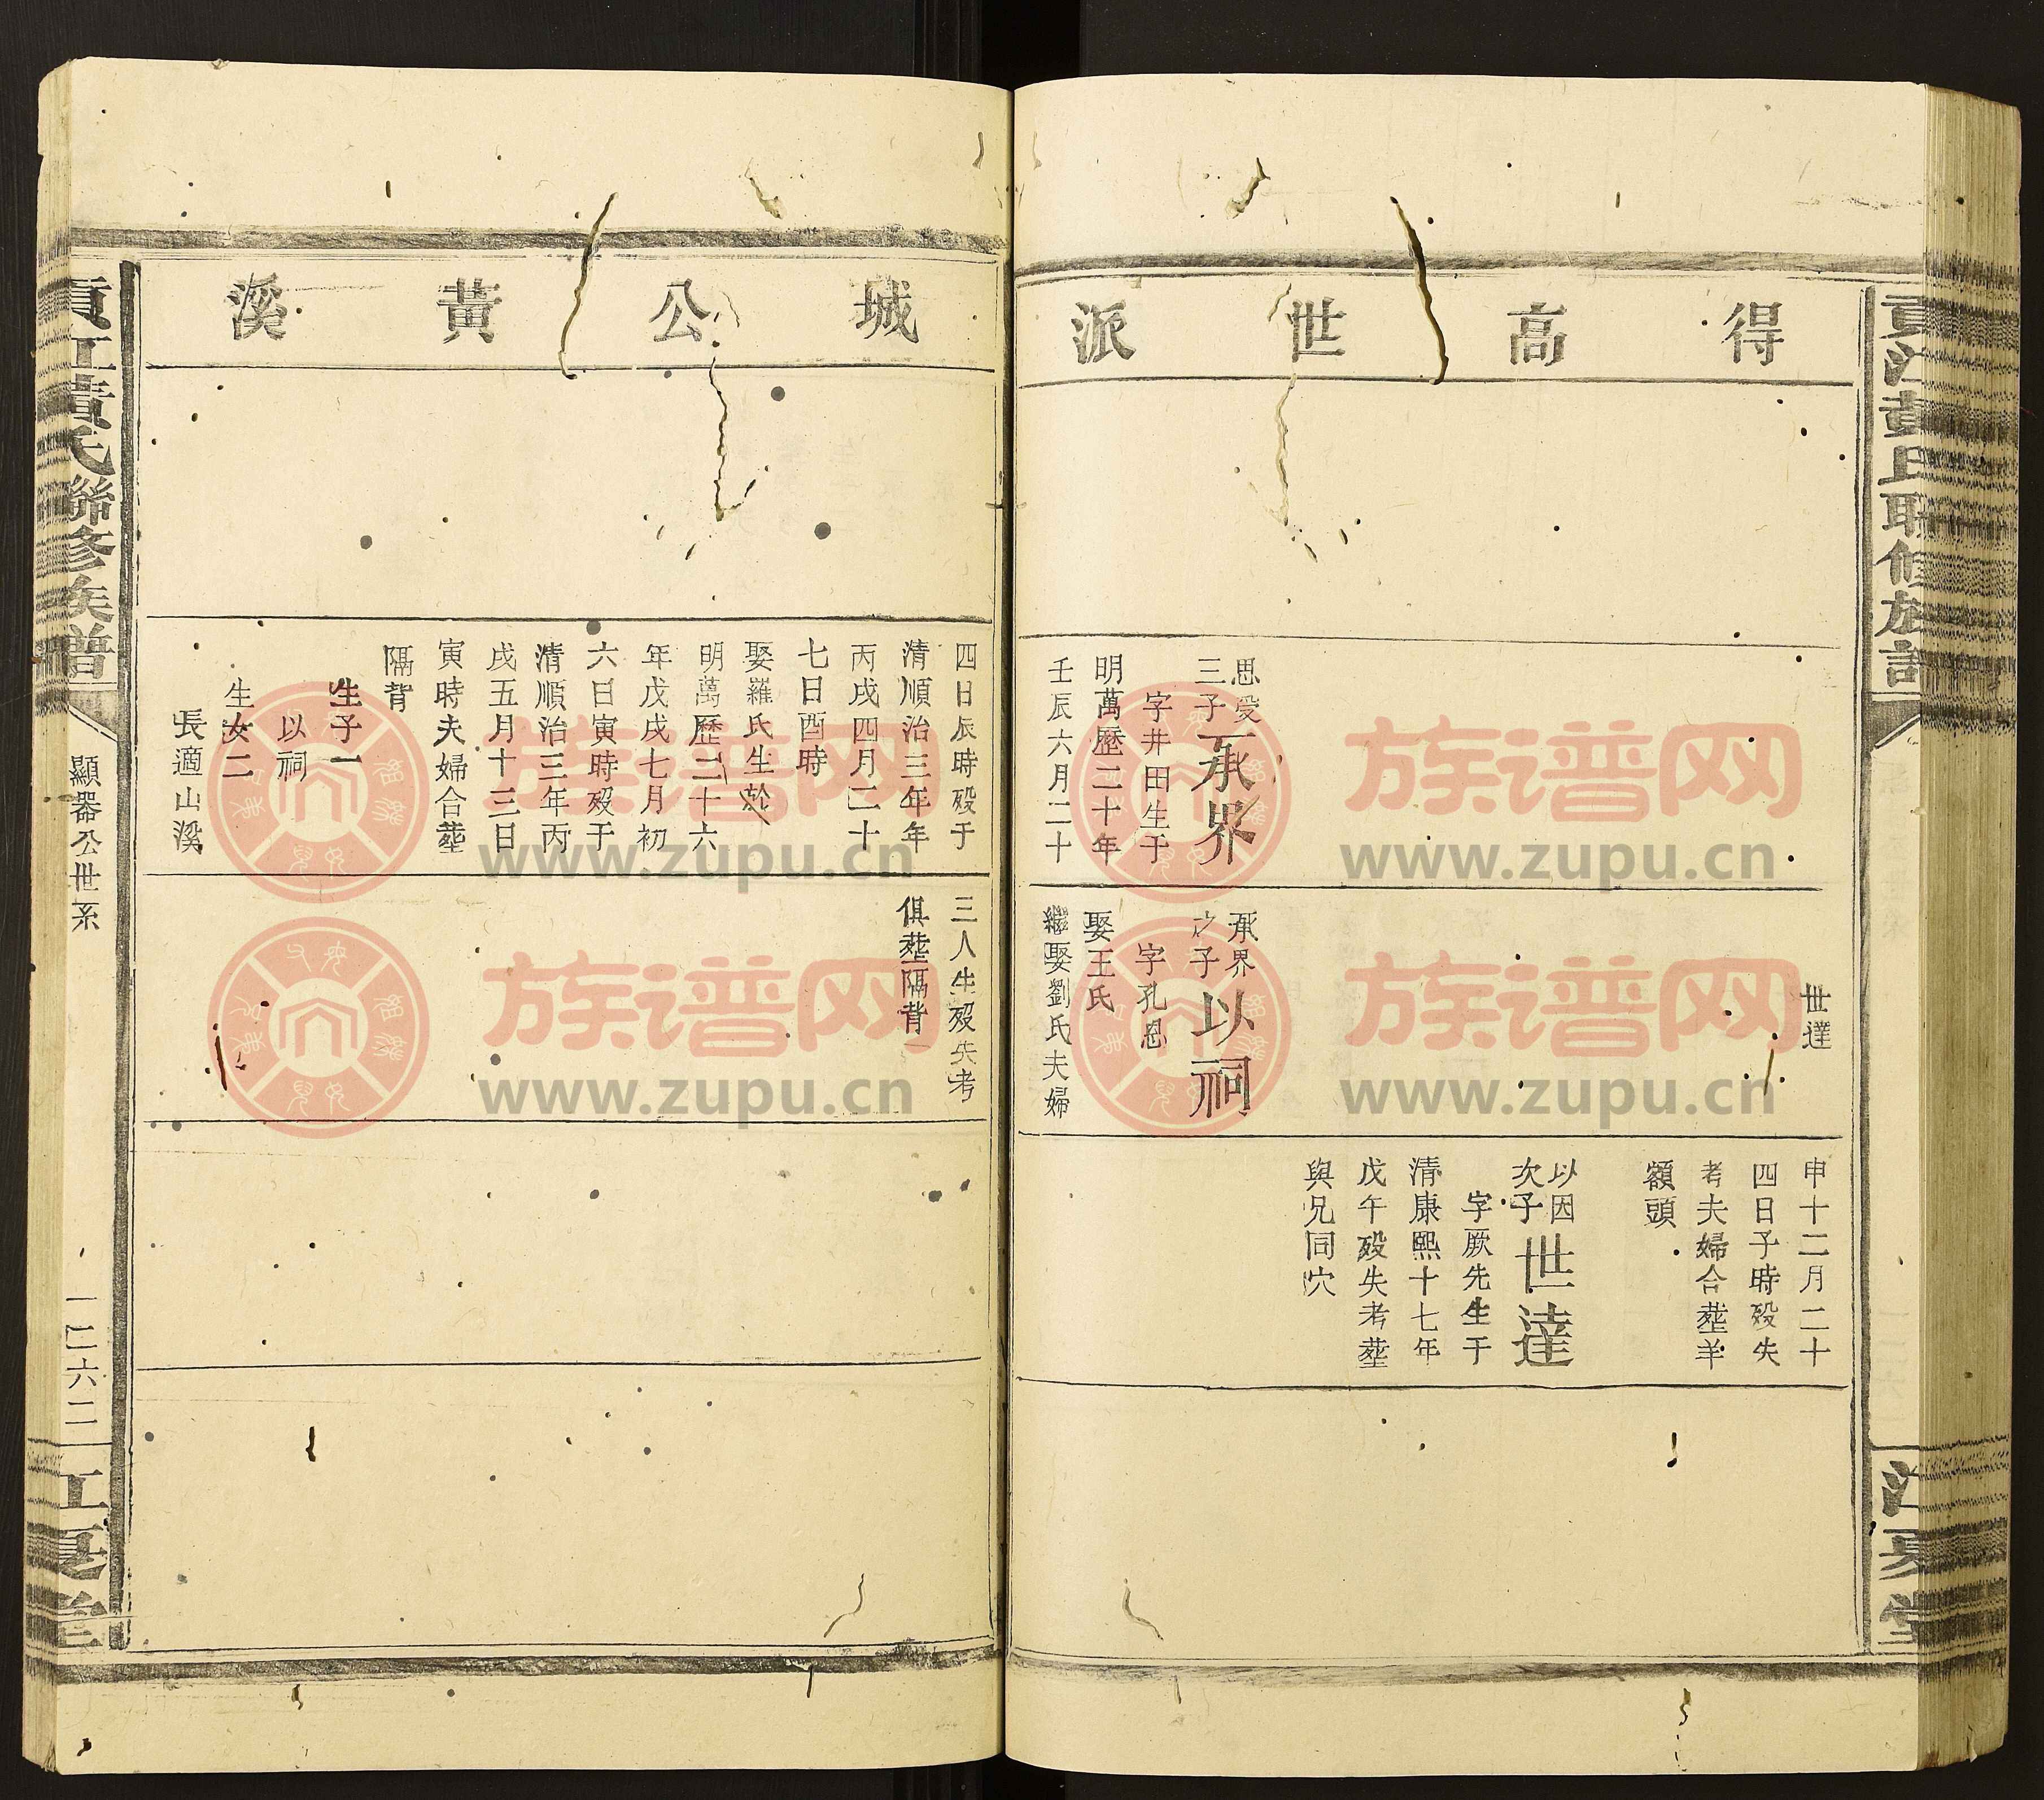 貢江黃氏聯修族譜
江夏堂
得高世派
思受
三子
承界
字井田生于
明萬歷二十年
壬辰六月二十
世達
承界
之子
以祠
字孔恩
娶王氏
繼娶劉氏夫婦
申十二月二十
四日子時歿失
考夫婦合塟羊
額頭
以因
次子
世達
字厥先生于
清康熙十七年
戊午歿失考塟
與兄同穴
城公黃溪
四日辰時歿于
清順治三年年
丙戌四月二十
七日酉時
娶羅氏生於
明萬歷二十六
年戊戌七月初
六日寅時歿于
清順治三年丙
戌五月十三日
寅時夫婦合塟
隔背
生子一
以祠
生女二
長適山溪
三人生歿失考
俱塟隔背
貢江黃氏聯修族譜
顯器公世系
江夏堂
族谱网
www.zupu.cn
族谱网
www.zupu.cn
族谱网
www.zupu.cn
族谱网
www.zupu.cn